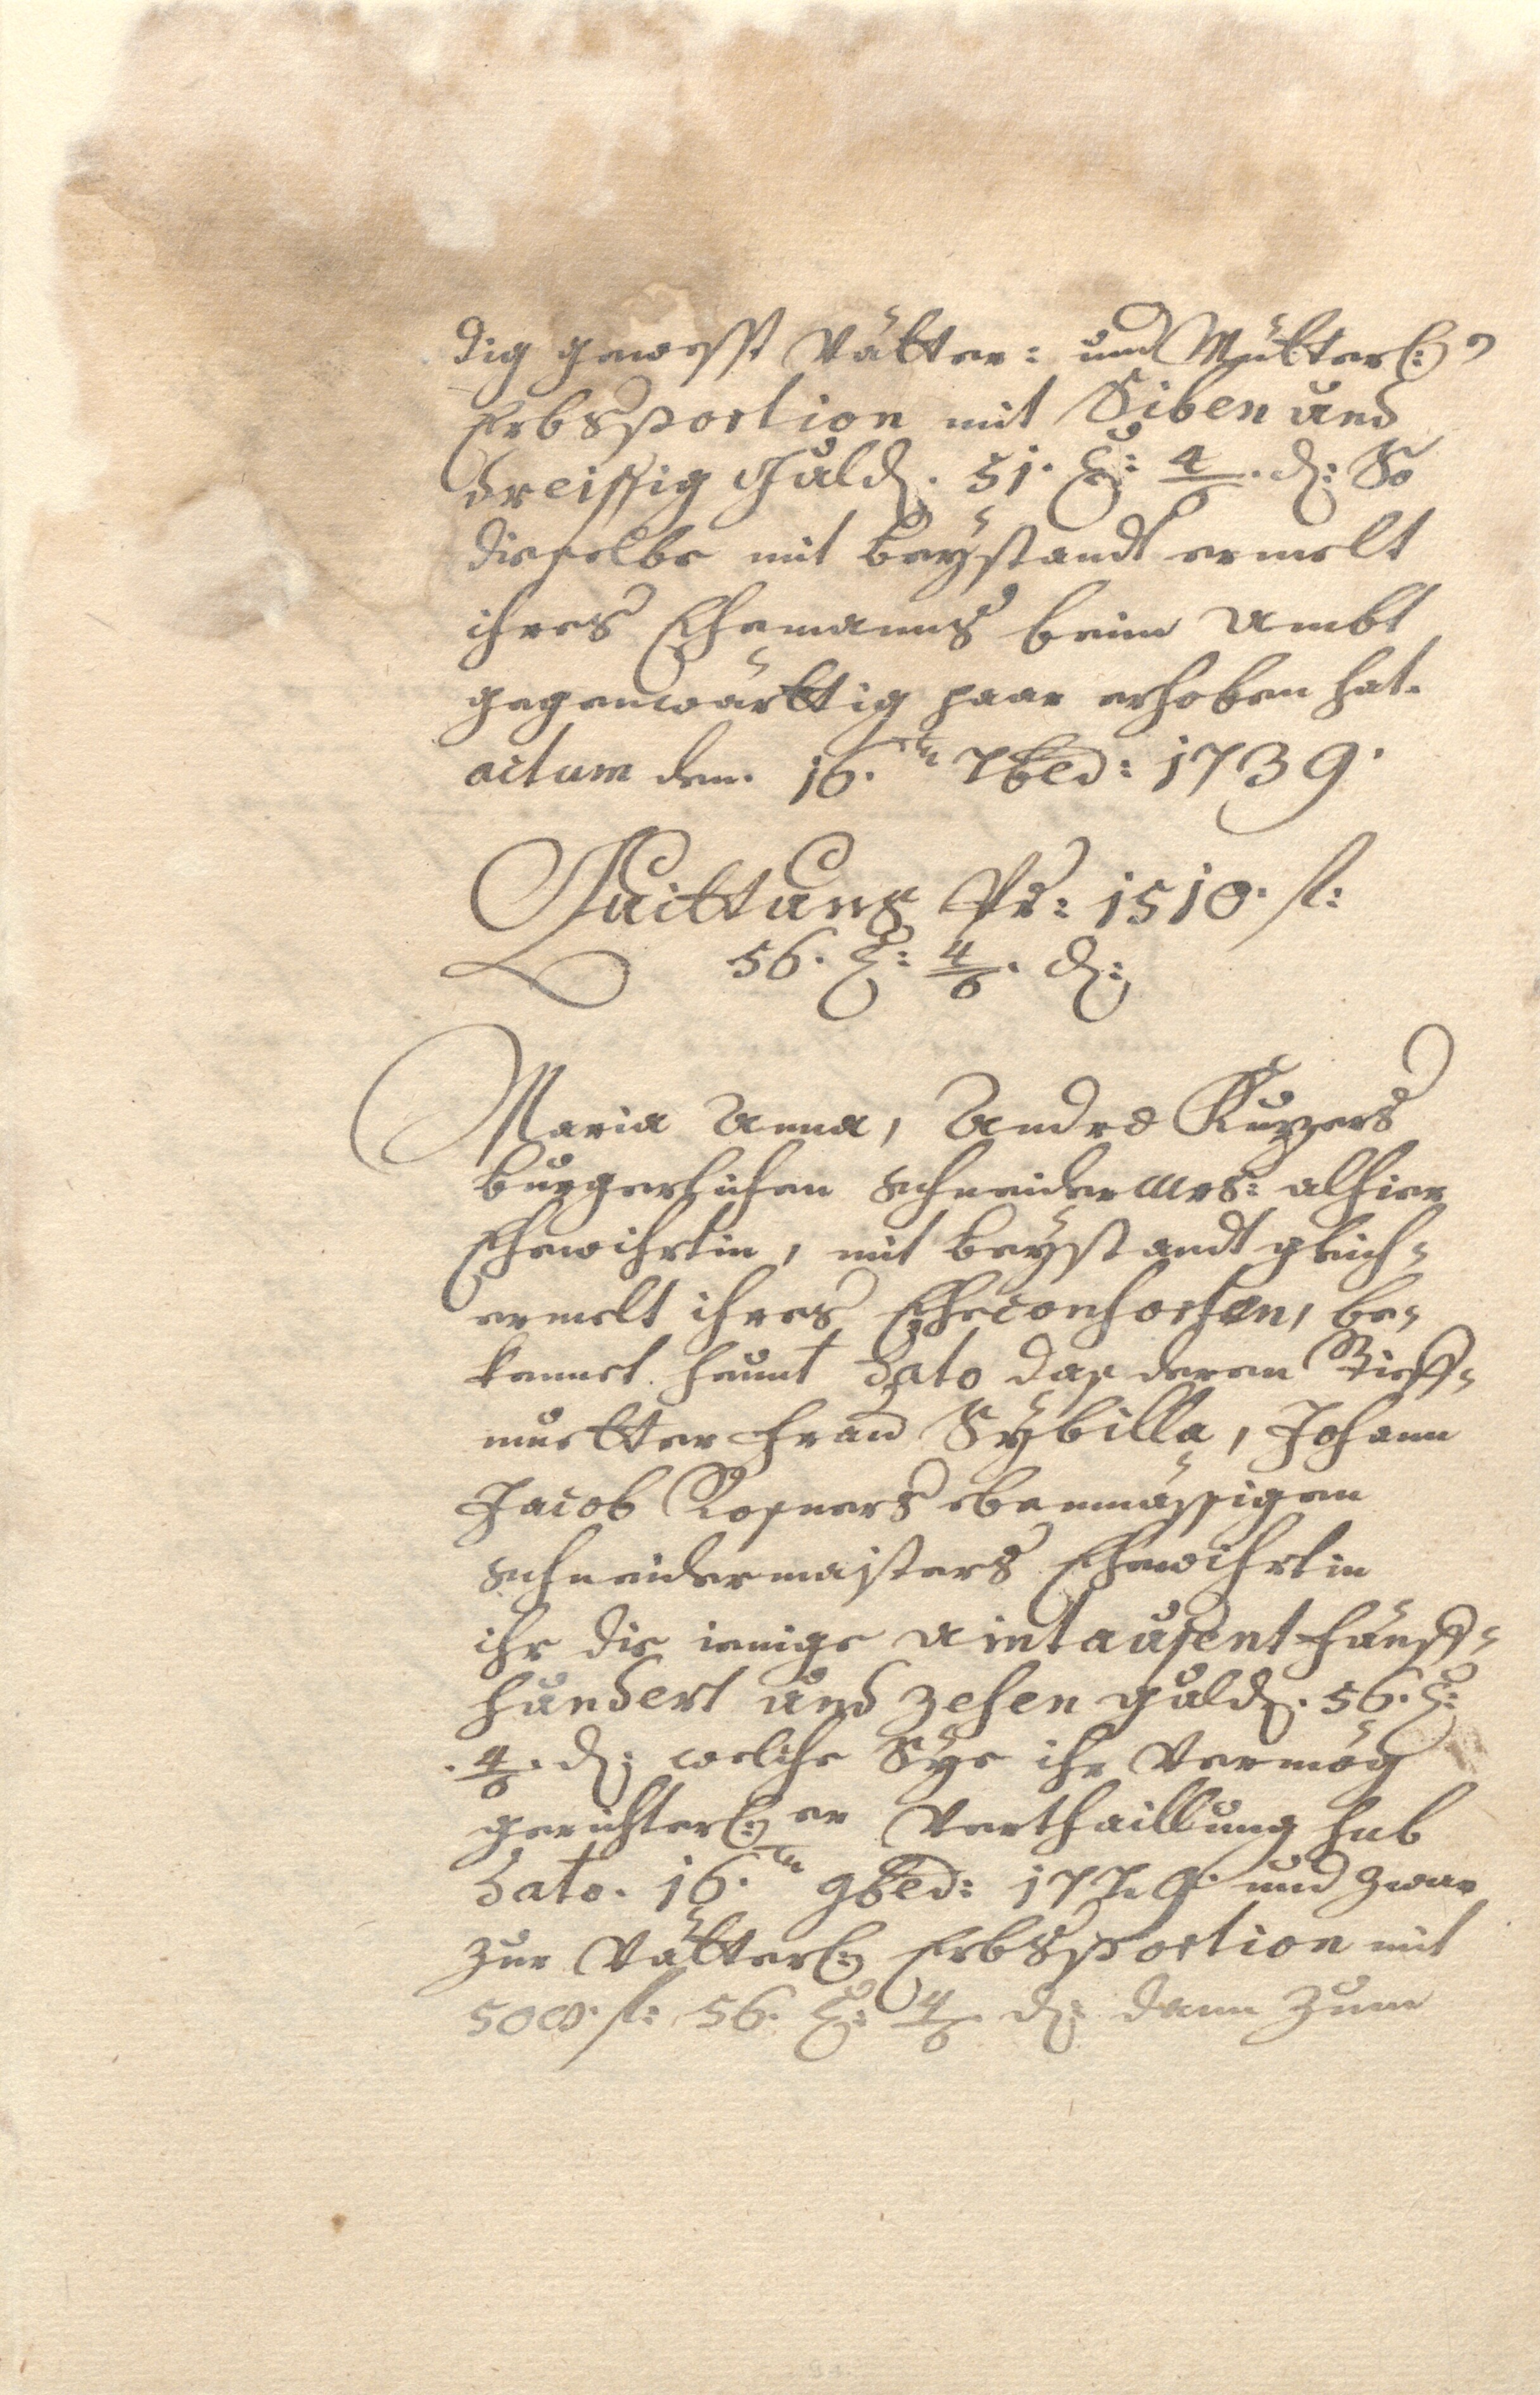 dig gewesst Vätter: und Mütterl:
Erbsportion mit Siben und
dreissig Guld. 51. x: 4/6. d: So
dieselbe mit beÿstandt ermelt
ihres Ehemanns beim Ambt
gegenwärttig paar erhoben hat.
actum den. 16.ten 7bed: 1739.
Quittung Pr: 1510. fl:
56. x: 4/6. d:
Maria Anna, Andre Kurzers
burgerlichen schneider Mrs: alhier
Ehewihrtin, mit beÿstandt gleich=
ermelt ihres Eheconsorten, be=
kennet heunt dato das deren Stieff=
muetter Frau Sÿbilla, Johann
Jacob Rosners ebenmässigen
schneidermaisters Ehewihrtin
ihr die ienige Aintausent Fünff=
hundert und zehen guld. 56. x:
4/6. d: welche Sÿe ihr Vermög
gerichterl:er Verthaillung sub
dato. 16.ten 9bed: 1729. und zwar
zur Vätterl: Erbsportion mit
500. fl: 56. x: 4/6 d: dann zum